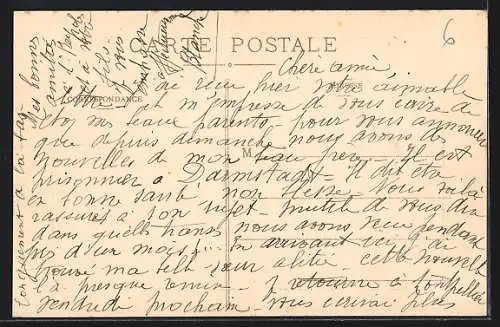 CARTE POSTALE
CORRESPONDANCE
Chère amie,
Je reçu hier votre aimable
et m'empresse de vous écrire de
chez mes beaux parents pour vous annoncer
que depuis dimanche nous avons de
nouvelles de mon beau frère. Il est
prisonnier à Darmstadt. Il dit être
en bonne santé, non blessé. Nous voilà
rassurés à son sujet. Inutile de vous dire
dans quelles transes nous avons vécu pendant
près d'un mois! En arrivant ici j'ai
trouvé ma belle-sœur alitée. Cette nouvelle
l'a presque remise. Je retourne à Montpellier
vendredi prochain. Vous écrirai plus
longuement à la
Mes bonnes
amitiés
à
et à
fils
et vous
Blanche
6